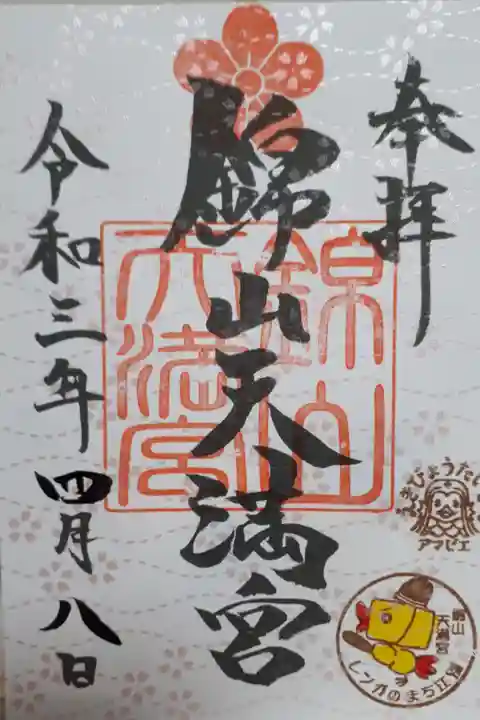 奉拝
錦山天満宮
錦山
天満宮
令和三年四月八日
アマビエ
錦山
天満宮
レンガのまち江別